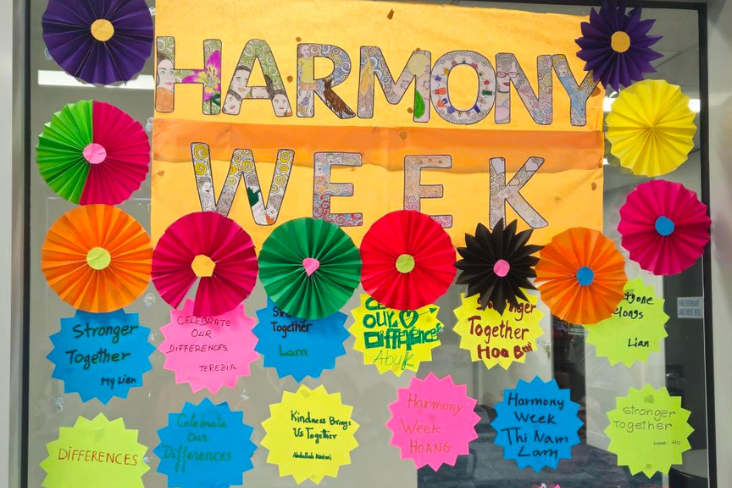 HARMONY
WEEK
Stronger
Together
My Lien
CELEBRATE
OUR
DIFFERENCES
TEREZIA
Stronger
Together
Lam
CELEBRATE
OUR
DIFFERENCES
Stronger
Together
Hoa
Belongs
Lian
DIFFERENCES
Celebrate
Our
Differences
Kindness Brings
Us Together
Abdullah
Harmony
Week
HOANG
Harmony
Week
Thi Nam
Lam
Stronger
Together